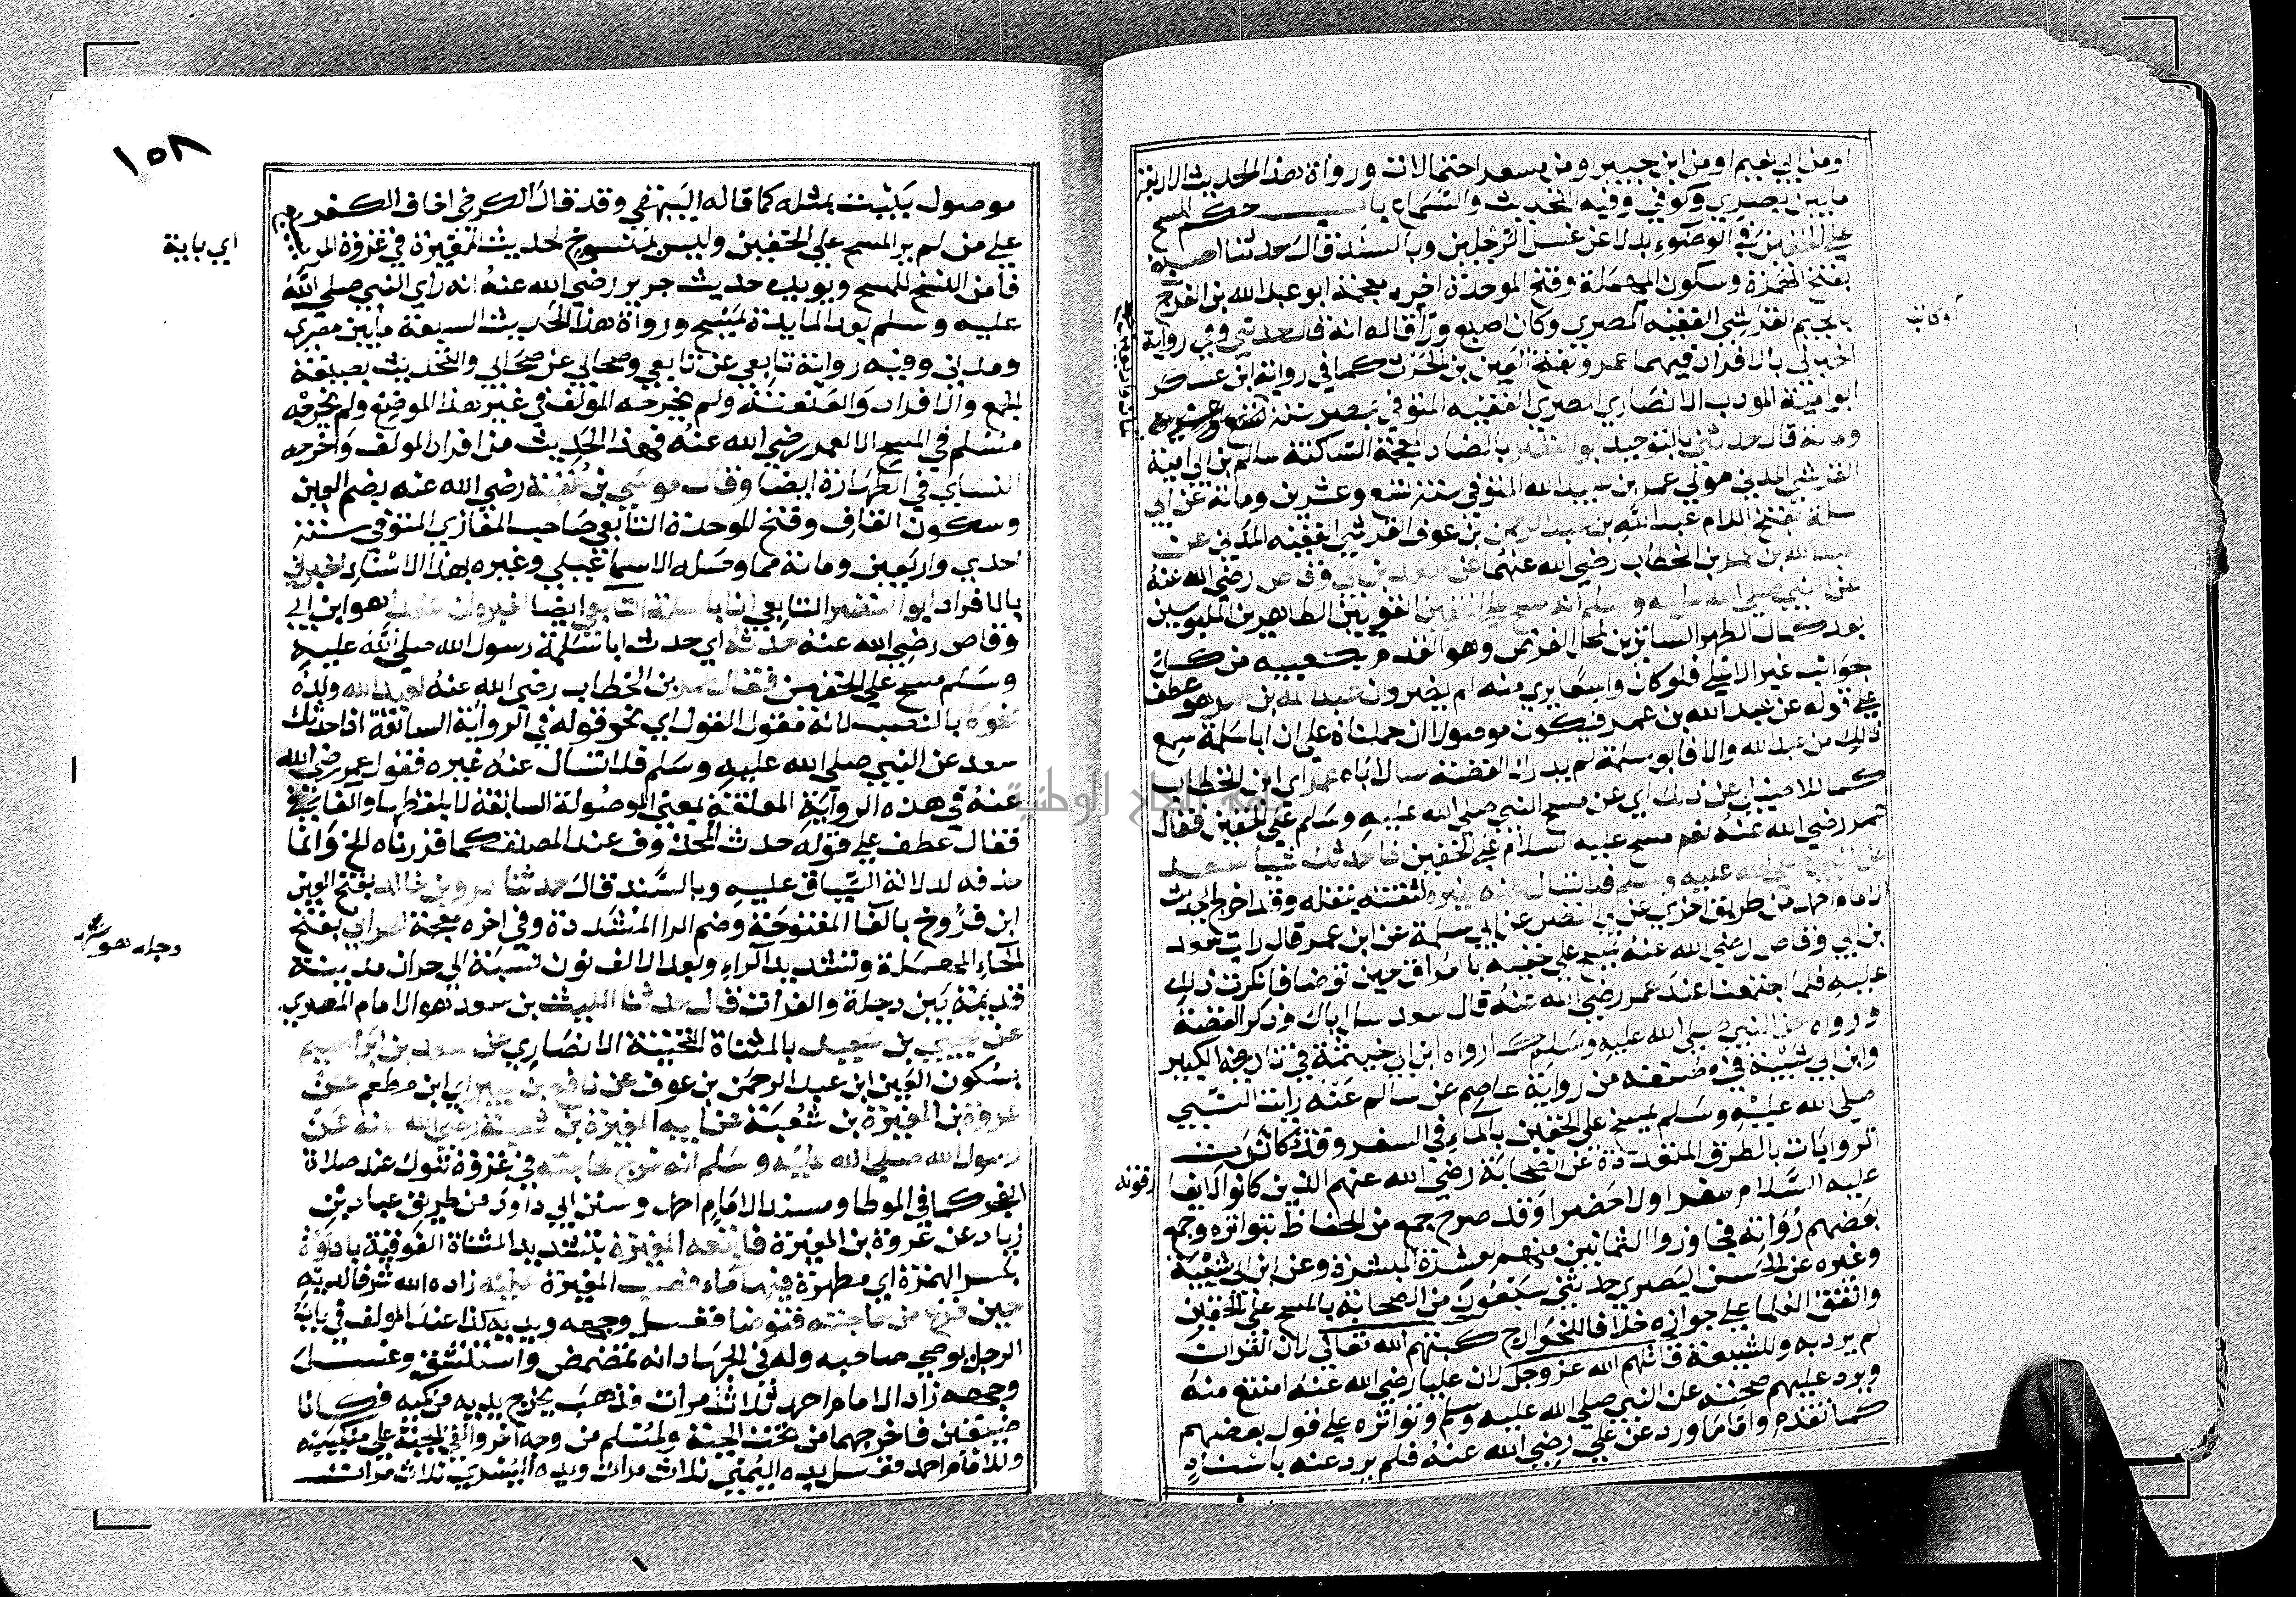 او من ابي نعيم او من ابن جبير او من مسعر احتمالات ورواة هذا الحديث الاربعة
ما بين بصري وكوفي وفيه التحديث والسماع باب حكم المسح
علي الخفين في الوضوء بدلا عن غسل الرجلين وبالسند قال حدثنا اصبغ
بفتح الهمزة وسكون المهملة وفتح الموحدة اخره معجمة ابو عبد الله بن الفرج
بالجيم القرشي الفقيه المصري وكان اصبغ وراقا له انه قال حدثني وفي رواية
اخبرني بالافراد فيهما عمرو بفتح العين بن الحرث كما في رواية ابن عساكر
ابو امية المودب الانصاري المصري الفقيه المتوفي بمصر سنة
وماية قال حدثني بالتوحيد ابو النضر بالضاد المعجمة الساكنة سالم بن ابي امية
القرشي المدني مولي عمر بن عبيد الله المتوفي سنة تسع وعشرين وماية عن ابي
سلمة بفتح اللام عبد الله بن عبد الرحمن بن عوف القرشي الفقيه المدني عن
عبد الله بن عمر بن الخطاب رضي الله عنهما عن سعد بن ابي وقاص رضي الله عنه
عن النبي صلي الله عليه وسلم انه مسح علي الخفين القويين الطاهرين الملبوسين
بعد كمال الطهر الساترين لمحل الفرض وهو القدم بكعبيه من كل
الجوانب غير الاعلي فلو كان واسعا يري منه لم يضر وان عبد الله بن عمر هو عطف
علي قوله عن عبد الله بن عمر فيكون موصولا ان حملناه علي ان ابا سلمة سمع
ذلك من عبد الله والا فابو سلمة لم يدرك القصة سال اباه عمر اي ابن الخطاب
كما للاصيلي عن ذلك اي عن مسح النبي صلي الله عليه وسلم علي الخفين فقال
عمر رضي الله عنه نعم مسح عليه السلام علي الخفين اذا حدثك شيا سعد
عن النبي صلي الله عليه وسلم فلا تسال عنه غيره لثقته بنقله وقد اخرج الحديث
الامام احمد من طريق اخري عن ابي النضر عن ابي سلمة عن ابن عمر قال رايت سعد
بن ابي وقاص رضي الله عنه يمسح علي خفيه بالعراق حين توضا فانكرت ذلك
عليه فلما اجتمعنا عند عمر رضي الله عنه قال سعد سل اباك وذكر القصة
ورواه عن النبي صلي الله عليه وسلم كما رواه ابن ابي خيثمة في تاريخه الكبير
وابن ابي شيبة في مصنفه من رواية عاصم عن سالم عنه رايت النبي
صلي الله عليه وسلم يمسح علي الخفين بالماء في السفر وقد تكاثرت
الروايات بالطرق المتعددة عن الصحابة رضي الله عنهم الذين كانوا لا يفارقونه
عليه السلام سفرا ولا حضرا وقد صرح جمع من الحفاظ بتواتره وجمع
بعضهم رواته فجاوزوا الثمانين منهم العشرة المبشرة وعن ابن ابي شيبة
وغيره عن الحسن البصري حدثني سبعون من الصحابة بالمسح علي الخفين
واتفق العلما علي جوازه خلافا للخوارج كبتهم الله تعالي لان القران
لم يرد به وللشيعة قاتلهم الله عز وجل لان عليا رضي الله عنه امتنع منه
ويرد عليهم صحته عن النبي صلي الله عليه وسلم وتواتره علي قول بعضهم
كما تقدم واما ما ورد عن علي رضي الله عنه فلم يرد عنه باسناد
١٥٨
موصول يثبت بمثله كما قاله البيهقي وقد قال الكرخي اخاف الكفر
علي من لم ير المسح علي الخفين وليس بمنسوخ لحديث المغيرة في غزوة
فامن النسخ للمسح ويويده حديث جرير رضي الله عنه انه راي النبي صلي الله
عليه وسلم بعد المايدة يمسح ورواة هذا الحديث السبعة ما بين مصري
ومدني وفيه رواية تابعي عن تابعي وصحابي عن صحابي والتحديث بصيغة
الجمع والافراد والعنعنة ولم يخرجه المولف في غير هذا الموضع ولم يخرجه
مسلم في المسح الا لعمر رضي الله عنه فهذا الحديث من افراد المولف واخرجه
النساي في الطهارة ايضا وقال موسي بن عقبة رضي الله عنه بضم العين
وسكون القاف وفتح الموحدة التابعي صاحب المغازي المتوفي سنة
احدي واربعين وماية مما وصله الاسماعيلي وغيره بهذا الاسناد اخبرني
بالافراد ابو النضر التابعي ان ابا سلمة التابعي ايضا اخبره ان سعدا هو ابن ابي
وقاص رضي الله عنه حدثه اي حدث ابا سلمة رسول الله صلي الله عليه
وسلم مسح علي الخفين فقال عمر بن الخطاب رضي الله عنه لعبد الله ولده
نحوه بالنصب لانه مقول القول اي نحو قوله في الرواية السابقة اذا حدثك
سعد عن النبي صلي الله عليه وسلم فلا تسال عنه غيره فقول عمر رضي الله
عنه في هذه الرواية المعلقة بمعني الموصولة السابقة لا بلفظها والفا في
فقال عطف علي قوله حدث المحذوف عند المصنف كما قررناه الخ وانما
حذفه لدلالة السياق عليه وبالسند قال حدثنا عمرو بن خالد بفتح العين
ابن فروخ بالفا المفتوحة وضم الرا المشددة وفي اخره معجمة الحراني بفتح
الحاء المهملة وتشديد الراء وبعد الالف نون نسبة الي حران مدينة
قديمة بين دجلة والفرات قال حدثنا الليث بن سعد هو الامام المصري
عن يحيي بن سعيد بالمثناة التحتية الانصاري عن سعد بن ابراهيم
بسكون العين ابن عبد الرحمن بن عوف عن نافع بن جبير اي ابن مطعم عن
عروة بن المغيرة بن شعبة عن ابيه المغيرة بن شعبة رضي الله عنه عن
رسول الله صلي الله عليه وسلم انه خرج لحاجته في غزوة تبوك عند صلاة
الفجر كما في الموطا ومسند الامام احمد وسنن ابي داود من طريق عباد بن
زياد عن عروة بن المغيرة فاتبعه المغيرة بتشديد المثناة الفوقية باداوة
بكسر الهمزة اي مطهرة فيها ماء فصب المغيرة عليه زاده الله شرفا لديه
حين فرغ من حاجته فتوضا فغسل وجهه ويديه كذا عند المولف في باب
الرجل يوضي صاحبه وله في الجهاد انه تمضمض واستنشق وغسل
وجهه زاد الامام احمد ثلاث مرات فذهب يخرج يديه من كميه فكانا
ضيقين فاخرجهما من تحت الجبة ولمسلم من وجه اخر والقي الجبة علي منكبيه
وللامام احمد فغسل يده اليمني ثلاث مرات ويده اليسري ثلاث مرات
اي باية